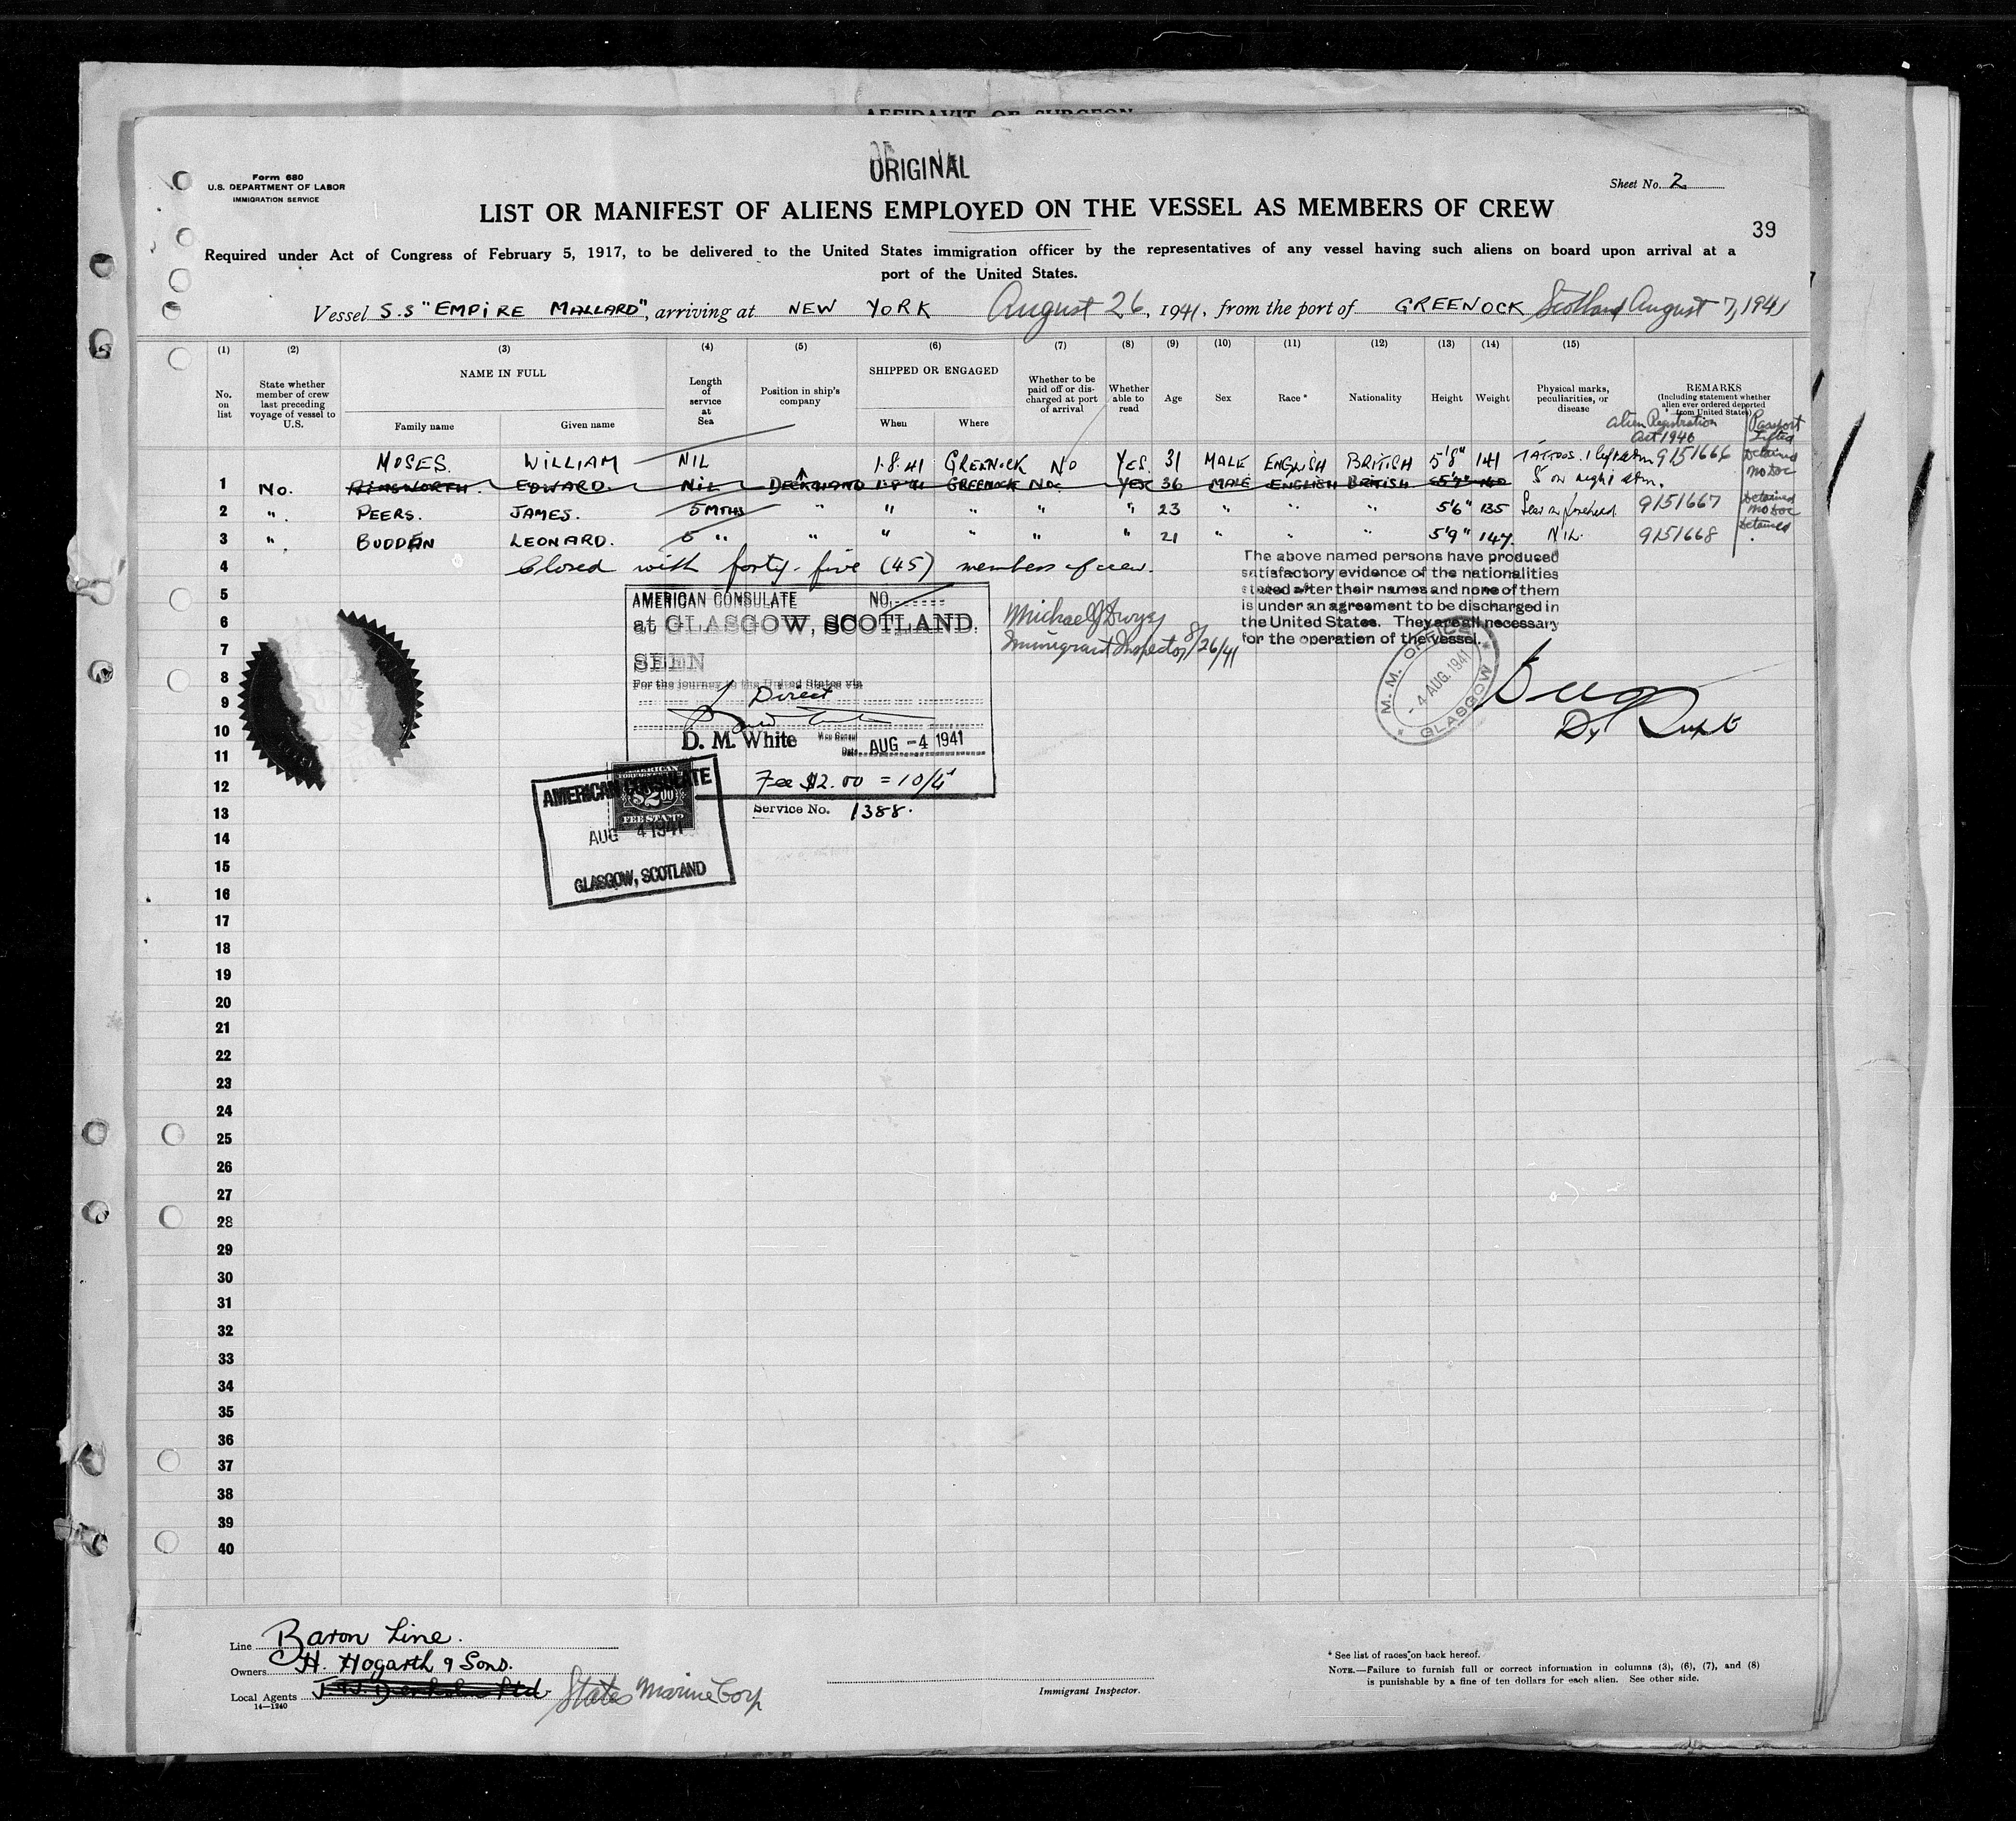 AFFIDAVIT OF SURGEON
ORIGINAL
Form 680
U.S. DEPARTMENT OF LABOR
IMMIGRATION SERVICE
Sheet No. 2
LIST OR MANIFEST OF ALIENS EMPLOYED ON THE VESSEL AS MEMBERS OF CREW
39
Required under Act of Congress of February 5, 1917, to be delivered to the United States immigration officer by the representatives of any vessel having such aliens on board upon arrival at a
port of the United States.
Vessel S.S "EMPIRE MALLARD", arriving at NEW YORK August 26, 1941, from the port of GREENOCK Scotland August 7, 1941
(1) (2) (3) (4) (5) (6) (7) (8) (9) (10) (11) (12) (13) (14) (15)
No. on list
State whether member of crew last preceding voyage of vessel to U.S.
NAME IN FULL
Family name Given name
Length of service at Sea
Position in ship's company
SHIPPED OR ENGAGED
When Where
Whether to be paid off or discharged at port of arrival
Whether able to read
Age
Sex
Race *
Nationality
Height
Weight
Physical marks, peculiarities, or disease
REMARKS
(Including statement whether alien ever ordered deported from United States)
Alien Registration Act 1940
Passport Lifted
MOSES. WILLIAM NIL 1.8.41 GREENOCK NO YES. 31 MALE ENGLISH BRITISH 5'8" 141 TATTOOS. 1 left arm 9151666 Detained no Doc
1 No. AINSWORTH. EDWARD. NIL DECKHAND 1.8.41 GREENOCK NO. YES 36 MALE ENGLISH BRITISH 5'7" 140 5 on right arm.
2 ". PEERS. JAMES. 5 MTHS " " " " " 23 " " " 5'6" 135 Scar on forehead 9151667 Detained no Doc
3 ". BUDDEN LEONARD. 6 " " " " " " 21 " " " 5'9" 147. NIL. 9151668 Detained
4 Closed with forty-five (45) members of crew.
The above named persons have produced
satisfactory evidence of the nationalities
stated after their names and none of them
is under an agreement to be discharged in
the United States. They are all necessary
for the operation of the vessel.
5
6
7
8
9
10
11
12
13
14
15
16
17
18
19
20
21
22
23
24
25
26
27
28
29
30
31
32
33
34
35
36
37
38
39
40
AMERICAN CONSULATE NO.
at GLASGOW, SCOTLAND.
SEEN
For the journey to the United States via
Direct
D. M. White Vice Consul
Date AUG -4 1941
Fee $2.00 = 10/4
Service No. 1388.
Michael J Dwyer
Immigrant Inspector 8/26/41
M. M. OFFICE
- 4 AUG. 1941
GLASGOW
Dy Supt
AMERICAN FOREIGN SERVICE
$2.00
FEE STAMP
AMERICAN CONSULATE
AUG 4 1941
GLASGOW, SCOTLAND
Line Baron Line.
Owners H. Hogarth & Sons.
Local Agents States Marine Corp
14—1240
Immigrant Inspector.
* See list of races on back hereof.
NOTE.—Failure to furnish full or correct information in columns (3), (6), (7), and (8)
is punishable by a fine of ten dollars for each alien. See other side.